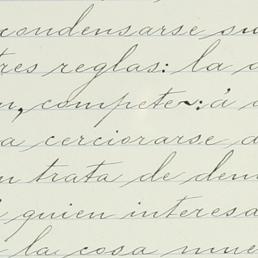 condensarse su
tres reglas: la
n, compete~: á
a cerciorarse
n trata de dem
quien interesa
la cosa mue